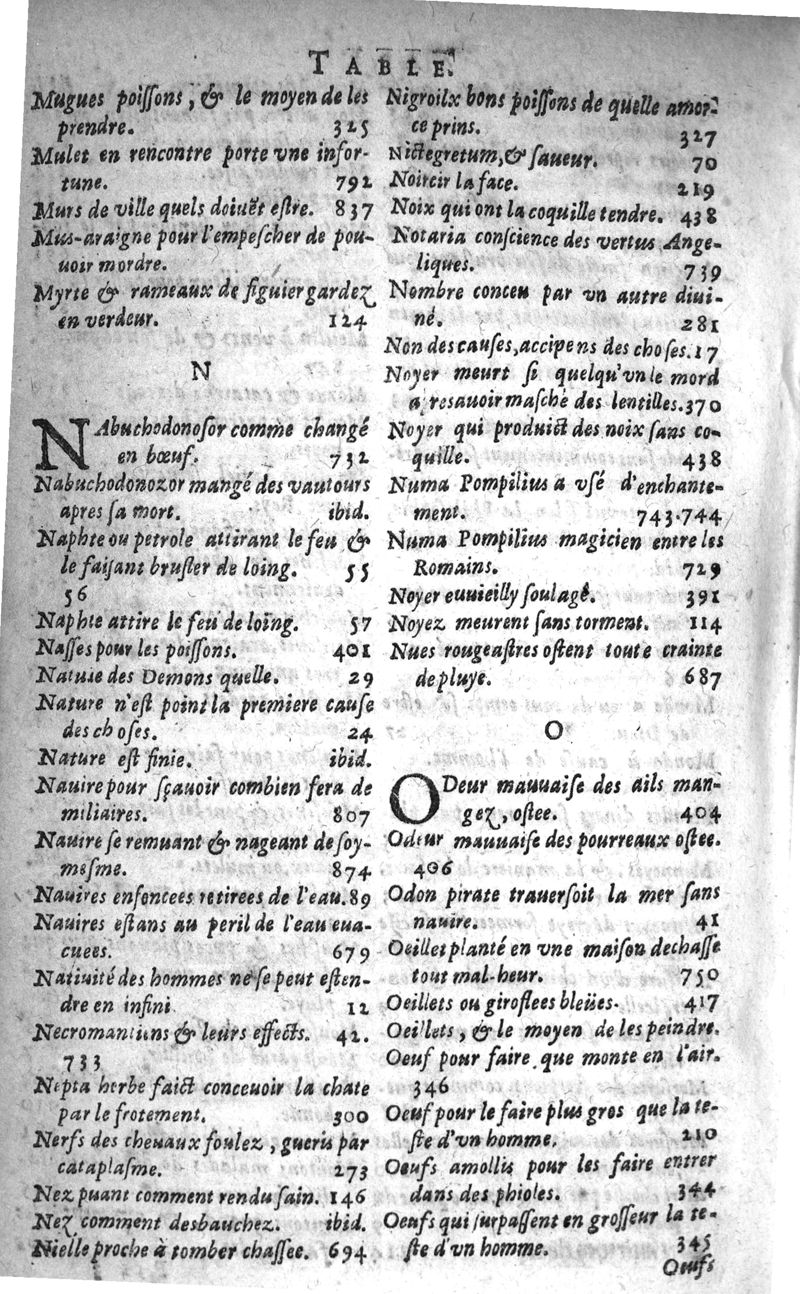 TABLE.
Mugues poiſſons, & le moyen de les
prendre. 325
Mulet en rencontre porte vne infor-
tune. 792
Murs de ville quels doiuẽt eſtre. 837
Mus-araigne pour l'empeſcher de pou-
uoir mordre.
Myrte & rameaux de figuier gardez
en verdeur. 124
N
NAbuchodonoſor comme changé
en bœuf. 732
Nabuchodonozor mangé des vautours
apres ſa mort. ibid.
Naphte ou petrole attirant le feu &
le faiſant bruſler de loing. 55
56
Naphte attire le feu de loing. 57
Naſſes pour les poiſſons. 401
Natuie des Demons quelle. 29
Nature n'eſt point la premiere cauſe
des choſes. 24
Nature eſt finie. ibid.
Nauire pour ſçauoir combien fera de
miliaires. 807
Nauire ſe remuant & nageant de ſoy-
meſme. 874
Nauires enfoncees retirees de l'eau. 89
Nauires eſtans au peril de l'eau eua-
cuees. 679
Natiuité des hommes ne ſe peut eſten-
dre en infini 12
Necromantiens & leurs effects. 42.
733
Nepta herbe faict conceuoir la chate
par le frotement. 300
Nerfs des cheuaux foulez, gueris par
cataplaſme. 273
Nez puant comment rendu ſain. 146
Nez comment desbauchez. ibid.
Nielle proche à tomber chaſſee. 694
Nigroilx bons poiſſons de quelle amor-
ce prins. 327
Nictegretum, & ſaueur. 70
Noircir la face. 219
Noix qui ont la coquille tendre. 438
Notaria conſcience des vertus Ange-
liques. 739
Nombre conceu par vn autre diui-
né. 281
Non des cauſes, accipens des choſes. 17
Noyer meurt ſi quelqu'vn le mord
apres auoir maſché des lentilles. 370
Noyer qui produict des noix ſans co-
quille. 438
Numa Pompilius a vſé d'enchante-
ment. 743.744
Numa Pompilius magicien entre les
Romains. 729
Noyer euuieilly ſoulagé. 391
Noyez meurent ſans torment. 114
Nues rougeaſtres oſtent toute crainte
de pluye. 687
O
ODeur mauuaiſe des ails man-
gez, oſtee. 404
Odeur mauuaiſe des pourreaux oſtee.
406
Odon pirate trauerſoit la mer ſans
nauire. 41
Oeillet planté en vne maiſon dechaſſe
tout mal-heur. 750
Oeillets ou giroflees bleües. 417
Oeillets, & le moyen de les peindre.
Oeuf pour faire que monte en l'air.
346
Oeuf pour le faire plus gros que la te-
ſte d'vn homme. 210
Oeufs amollis pour les faire entrer
dans des phioles. 344
Oeufs qui ſurpaſſent en groſſeur la te-
ſte d'vn homme. 345
Oeufs